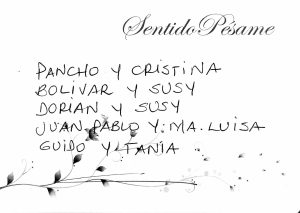 Sentido Pésame
PANCHO Y CRISTINA
BOLIVAR Y SUSY
DORIAN Y SUSY
JUAN PABLO Y MA. LUISA
GUIDO Y TANIA